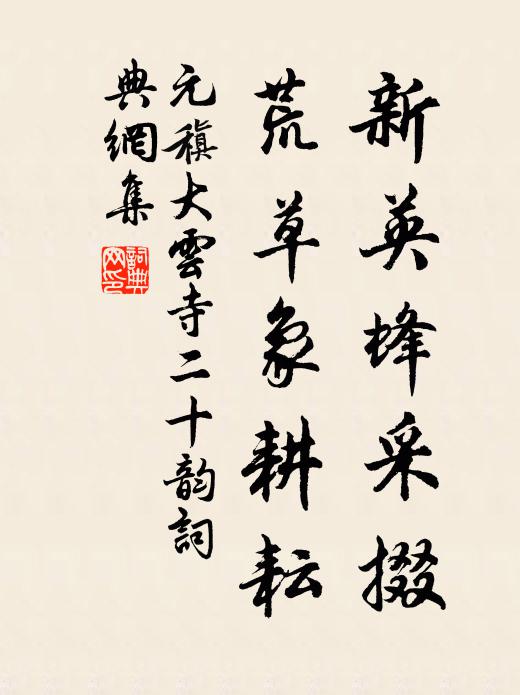 新英蜂采掇
荒草象耕耘
元稹大雲寺二十韵詞
典網集
詞典
网印